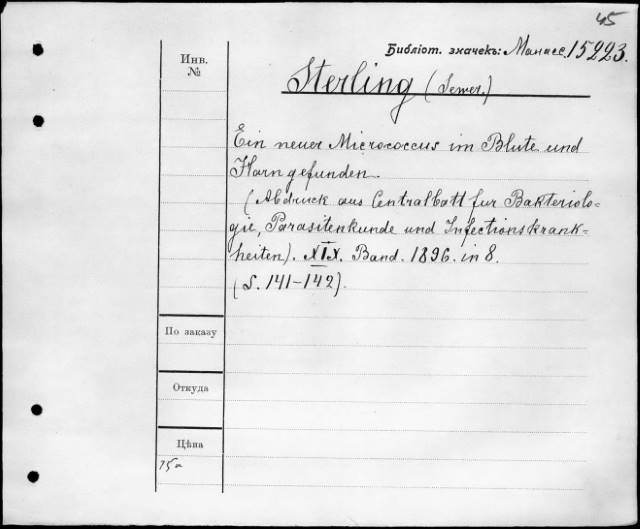 45
Библіот. значекъ: Манасс. 15223.
Инв.
№
Sterling (Sewer.)
Ein neuer Micrococcus im Blute und
Harn gefunden.
(Abdruck aus Centralbatt fur Bakteriolo=
gie, Parasitenkunde und Infectionskrank=
heiten). XIX. Band. 1896. in 8.
(S. 141-142).
По заказу
Откуда
Цѣна